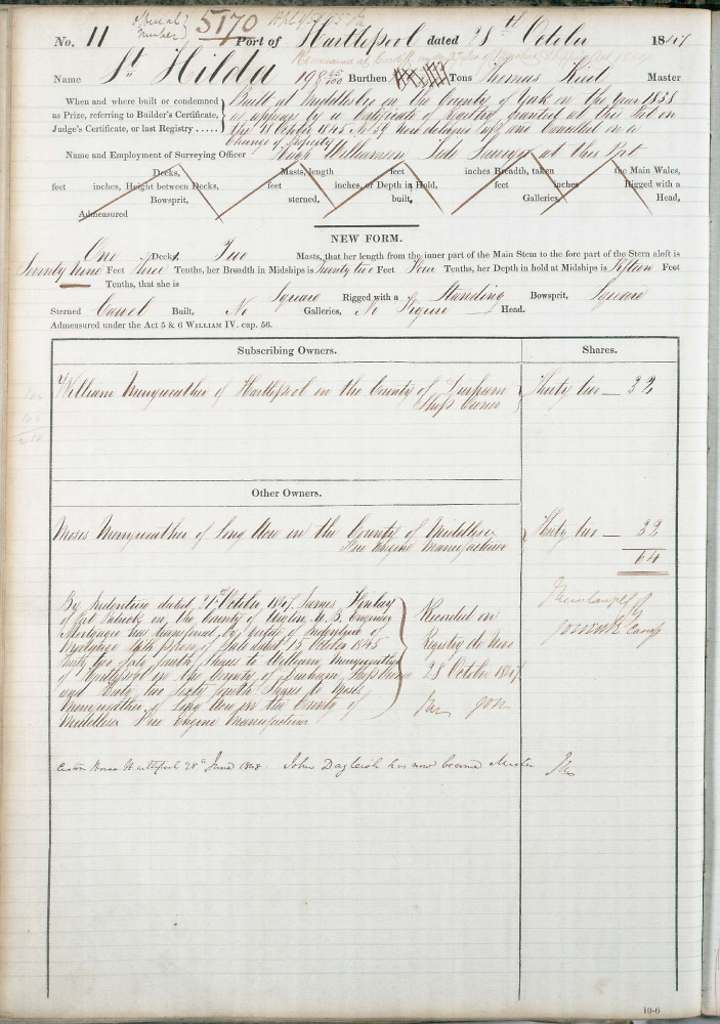 Official Number
5170
No. 11 Port of Hartlepool dated 28th October 1847
Name St Hilda Burthen 198 45/100 Tons Thomas Master
When and where built or condemned as Prize, referring to Builder's Certificate, Judge's Certificate, or last Registry .....
Built at Middlesbro in the County of York in the Year 1838
as appears by a Certificate of Registry granted at this Port on
the 21 October 1845 No 39 now delivered up and Cancelled on a
Change of Property
Name and Employment of Surveying Officer Hugh Williamson Tide Surveyor at this Port
Decks, Masts, length feet inches Breadth, taken the Main Wales,
feet inches, Height between Decks, feet inches, or Depth in Hold, feet inches Rigged with a
Bowsprit, sterned, built, Galleries, Head,
Admeasured
NEW FORM.
One Decks, Two Masts, that her length from the inner part of the Main Stem to the fore part of the Stern aloft is
Seventy nine Feet three Tenths, her Breadth in Midships is Twenty two Feet Tenths, her Depth in hold at Midships is Fifteen Feet
Tenths, that she is Square Rigged with a Standing Bowsprit, Square
Sterned Carvel Built, No Galleries, No Figure Head.
Admeasured under the Act 5 & 6 WILLIAM IV. cap. 56.
Subscribing Owners. Shares.
William Merryweather of Hartlepool in the County of Durham Thirty two — 32
Ship Owner
Other Owners.
Moses Merryweather of Long Acre in the County of Middlesex Thirty two — 32
Fire Engine Manufacturer
64
By Indenture dated 21st October 1847 James
of in the County of Engineer
Mortgagee has transferred by virtue of Indenture of
Mortgage power of Sale dated 15 October 1845
Thirty two Sixty fourth Shares to William Merryweather
of Hartlepool in the County of Durham Ship Owner
and Thirty two Sixty fourth Shares to Moses
Merryweather of Long Acre in the County of
Middlesex Fire Engine Manufacturer
Recorded on
Registry de Novo
28 October 1847
Custom House Hartlepool 28th June 1848 John Dagleish has now become Master
10-6